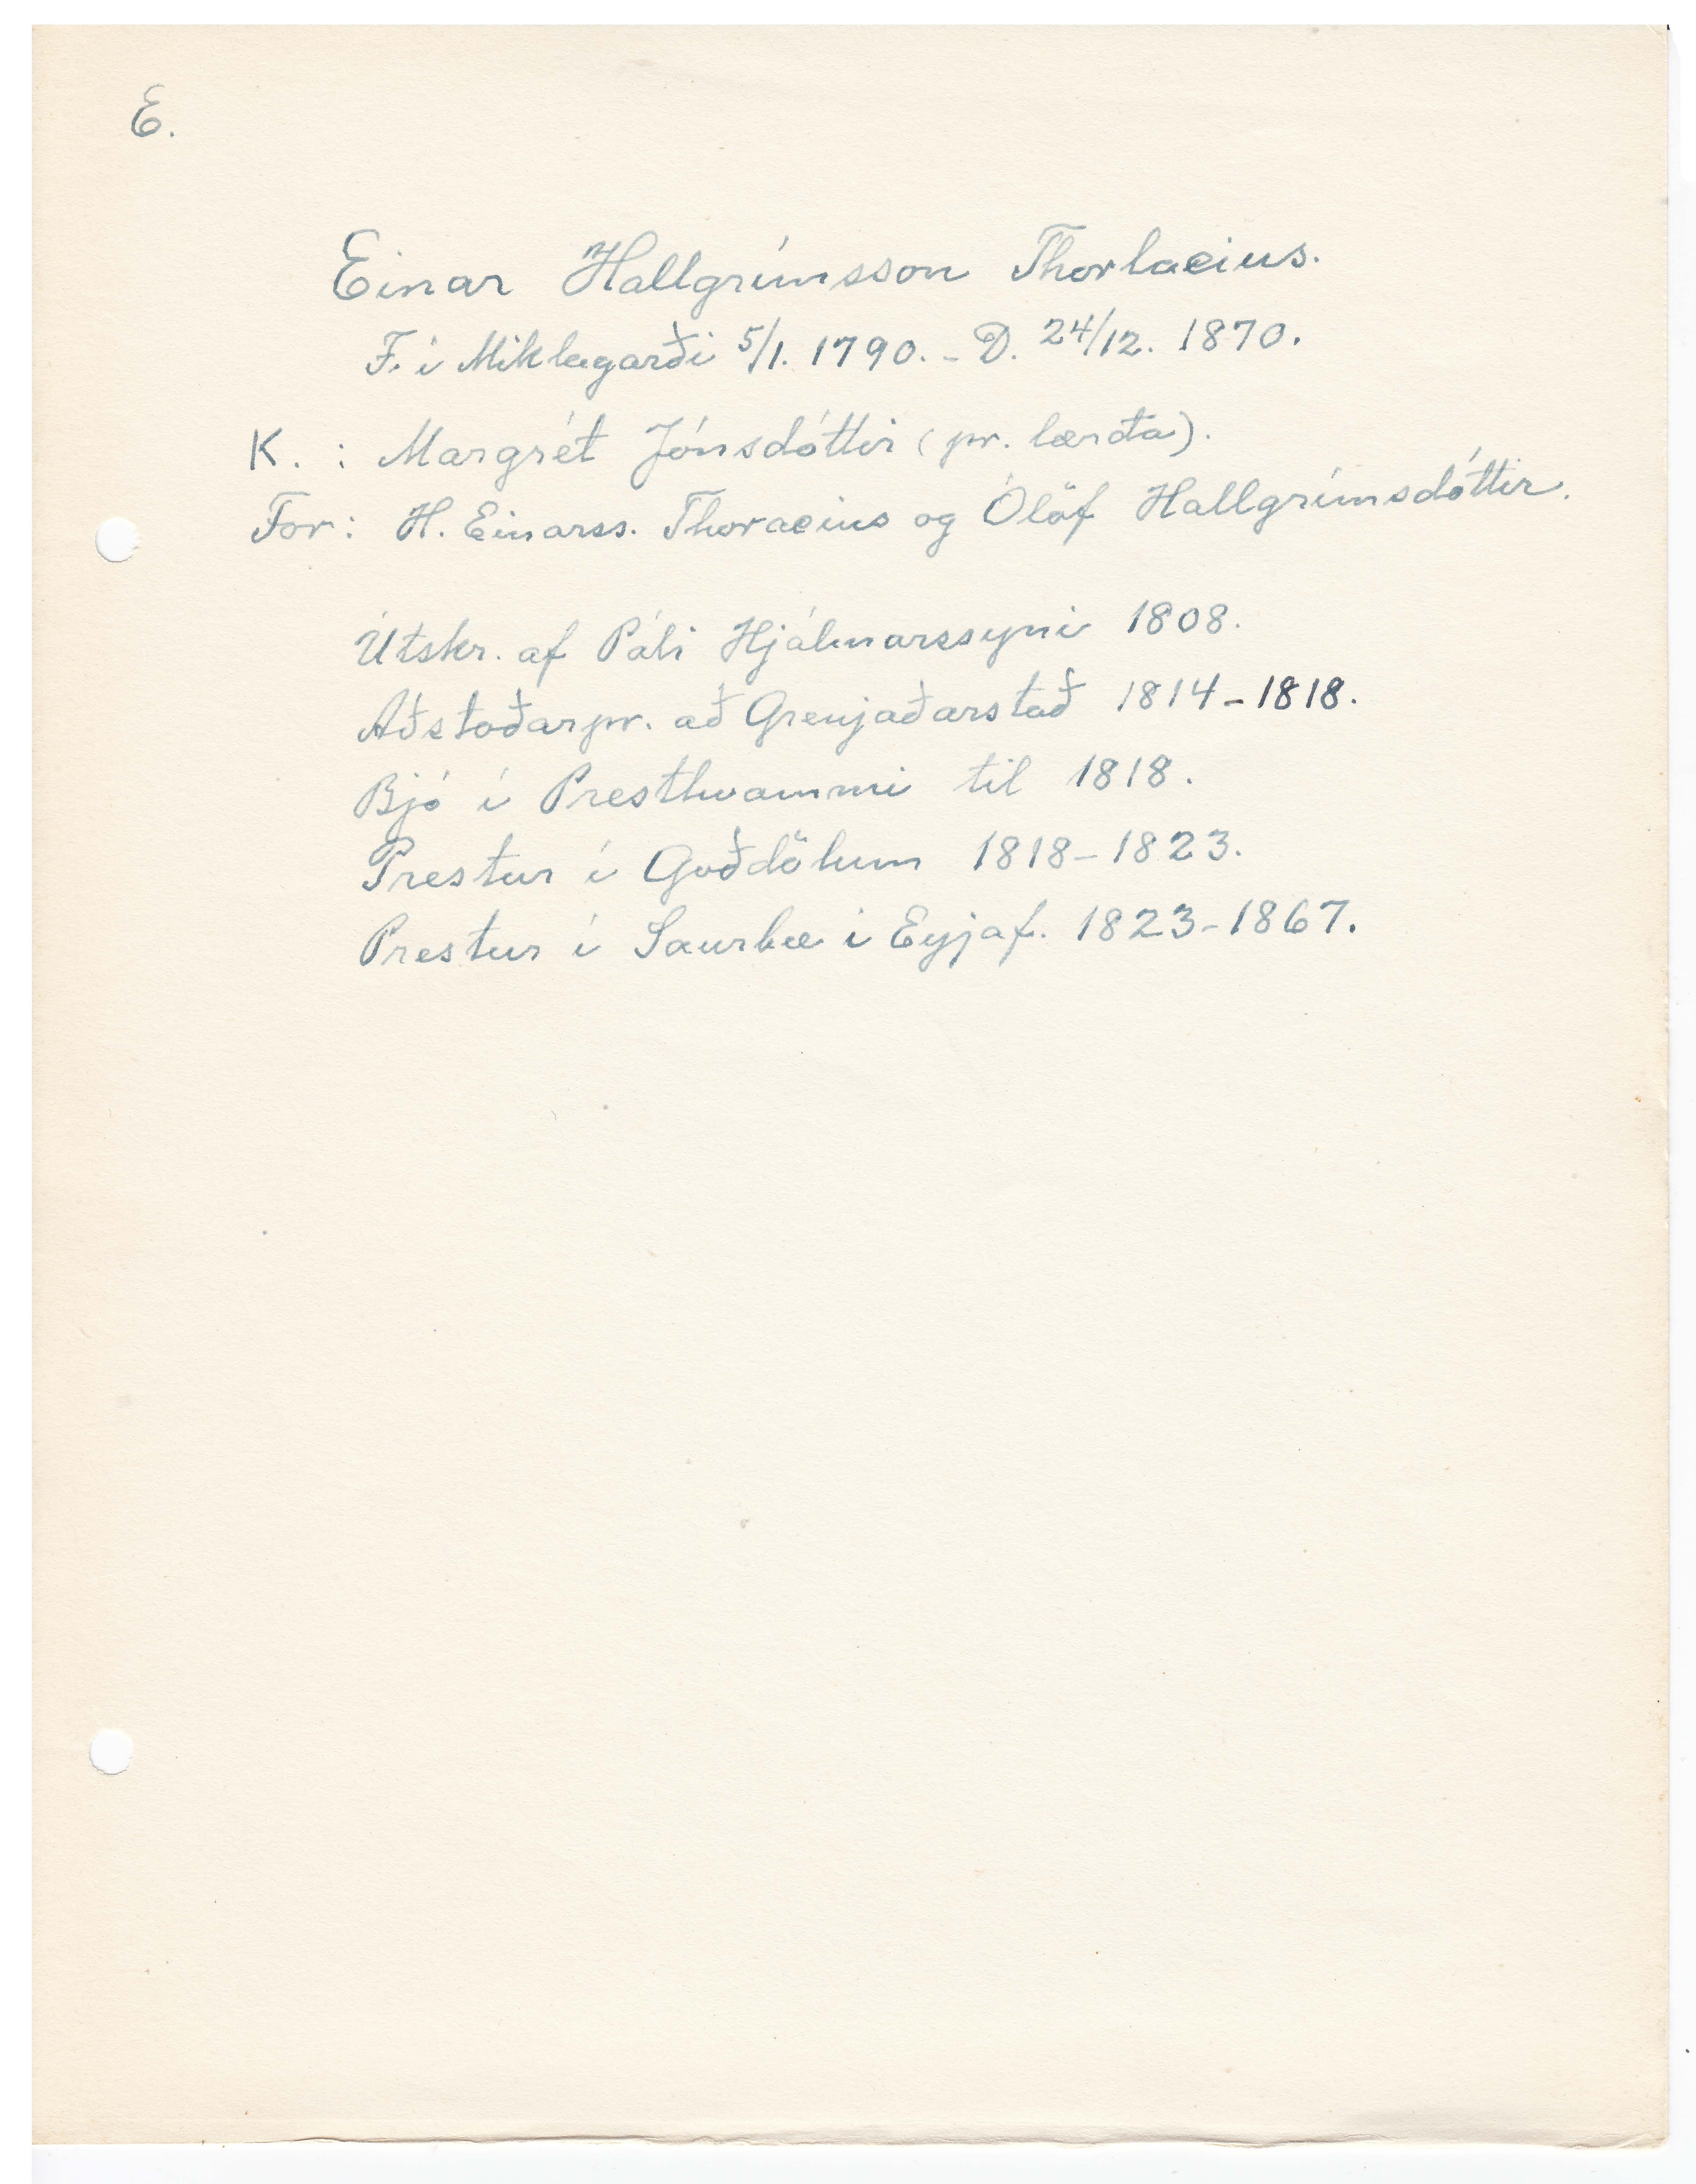 E.
Einar Hallgrímsson Thorlacius.
F. í Miklagarði 5/1. 1790. - D. 24/12. 1870.
K. : Margrét Jónsdóttir (pr. lærða).
For: H. Einarss. Thoracius og Ólöf Hallgrímsdóttir.
Útskr. af Páli Hjálmarssyni 1808.
Aðstoðarpr. að Grenjaðarstað 1814-1818.
Bjó í Presthvammi til 1818.
Prestur í Goðdölum 1818-1823.
Prestur í Saurbæ í Eyjaf. 1823-1867.